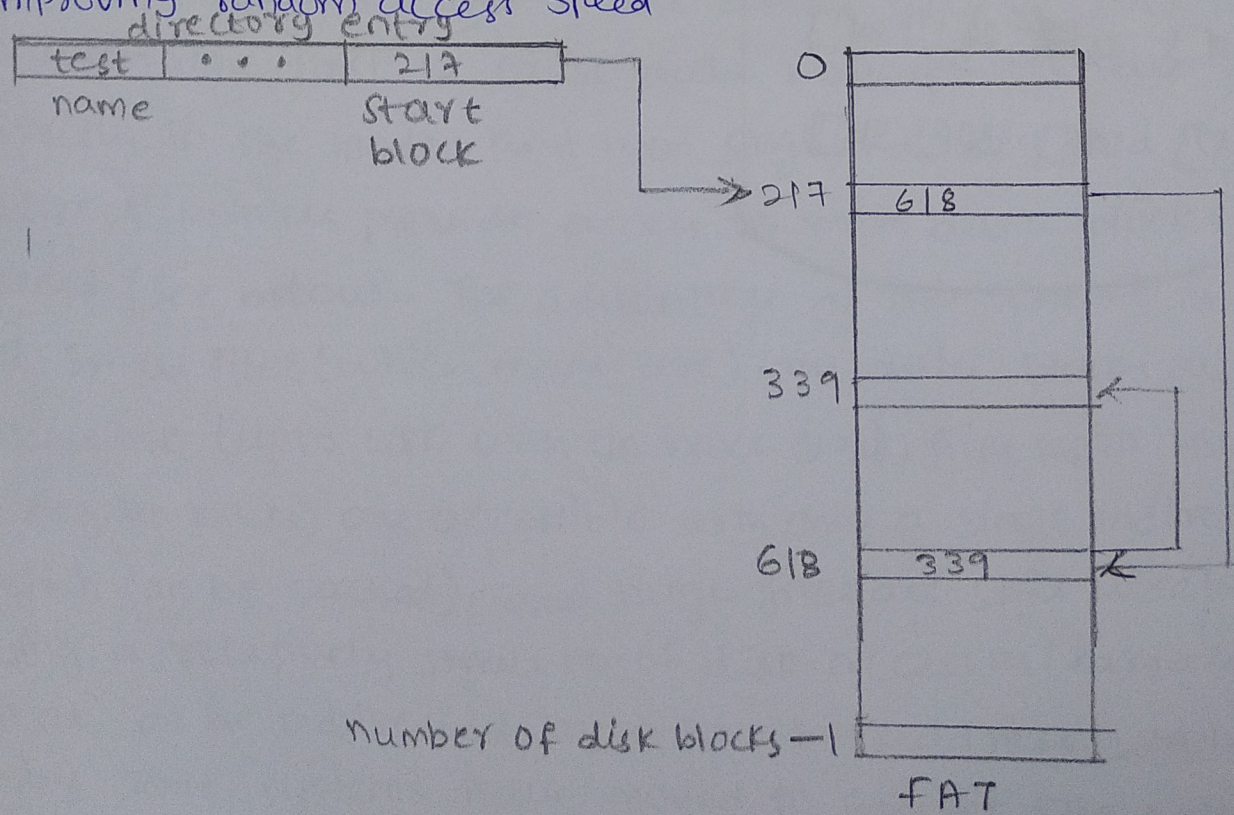 improving random access speed
directory entry
test • • • 217
name start
block
0
217 618
339
618 339
number of disk blocks -1
FAT